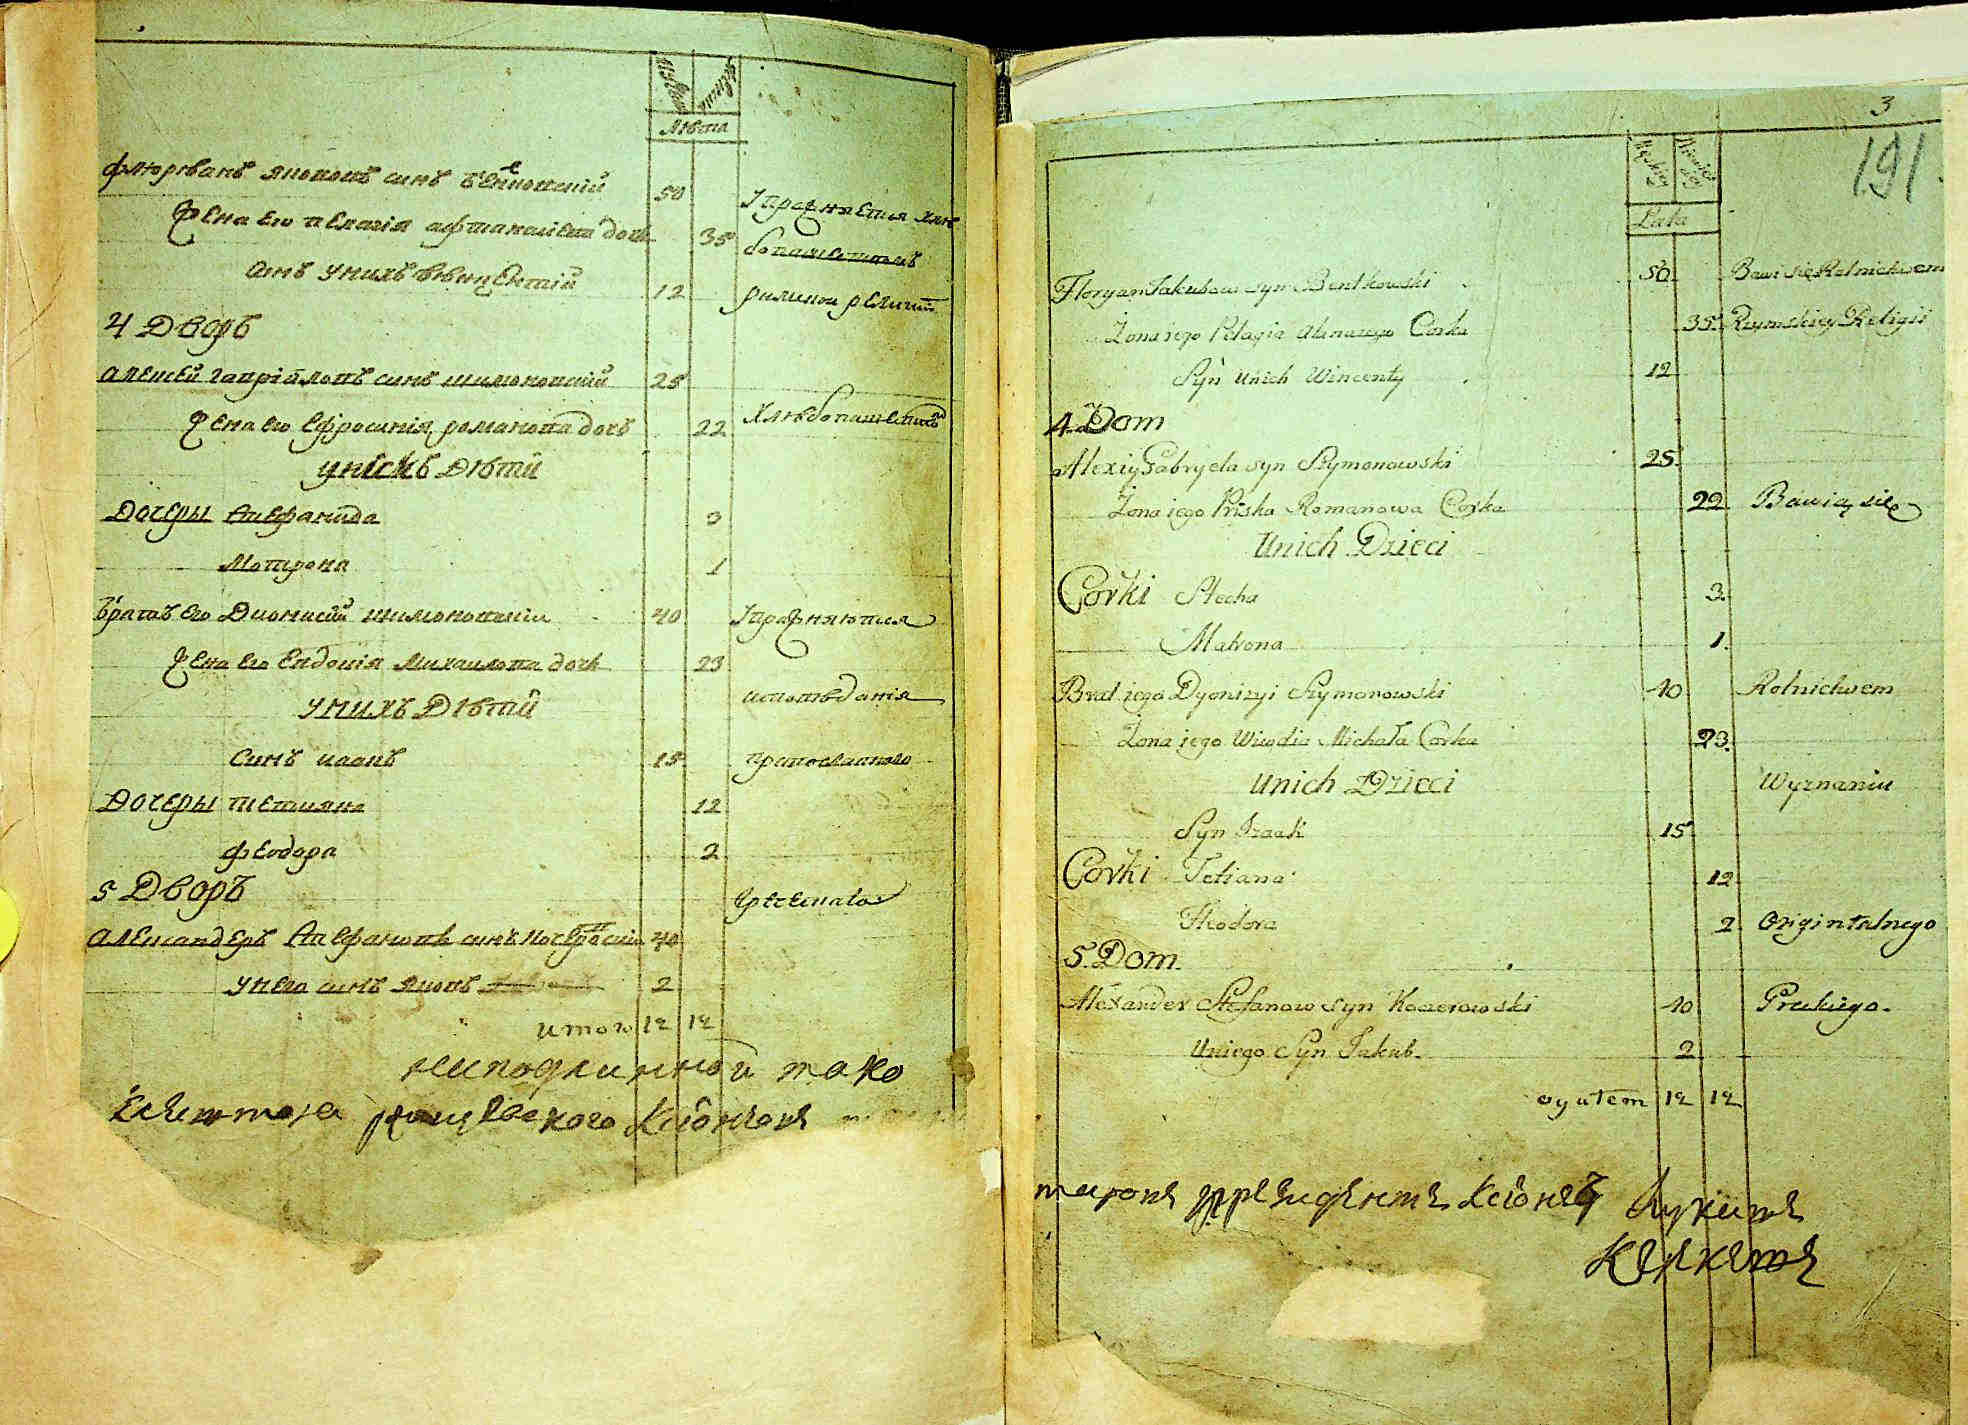 Лѣта
Флорыанъ яковомъ синъ Бенковскій 50
Жена его пелагія афтанасіева дочь 35 упражняется хлѣ
бопашетвомъ
синъ унихъ викентій 12 римской религіи
4 Дворъ
Алексей гавріиловъ синъ шимоновскій 25
Жена его Ефросинія романова дочъ 22 Хлѣбопашествомъ
унихъ Дѣти
Дочеры Стефанида 3
Мотрона 1
братъ его Дионисій шимоновскій 40 упражняются
Жена его Евдокія михаилова дочь 23
унихъ Дѣти исповѣданія
Синъ исакъ 15 православного
Дочеры тетияна 12
феодора 2
5 Дворъ греческаго
Александеръ Стефановъ синъ 40
унего синъ яковъ 2
итого 12 12
3
191
Męzkiey
Lata
Floryan Jakubow syn Bentkowski 50 Bawi się Rolnictwem
Żona iego Pelagia Atanazego Corka 35 Rzymskiey Religii
Syn unich Wincenty 12
4 Dom
Alexiy Gabryela syn Szymonowski 25
Żona iego Priska Romanowa Corka 22 Bawią się
Unich Dzieci
Corki Stecha 3
Matrona 1.
Brat iego Dyonizyi Szymonowski 40 Rolnictwem
Żona iego Wiwdia Michała Corka 23.
Unich Dzieci Wyznaniu
Syn Izaak 15
Corki Tetiana 12
Theodora 2 Orgintalnego
5. Dom
Alexander Stefanow syn Kocerowski 40 Greckiego.
Uniego Syn Jakub. 2
ogułem 12 12